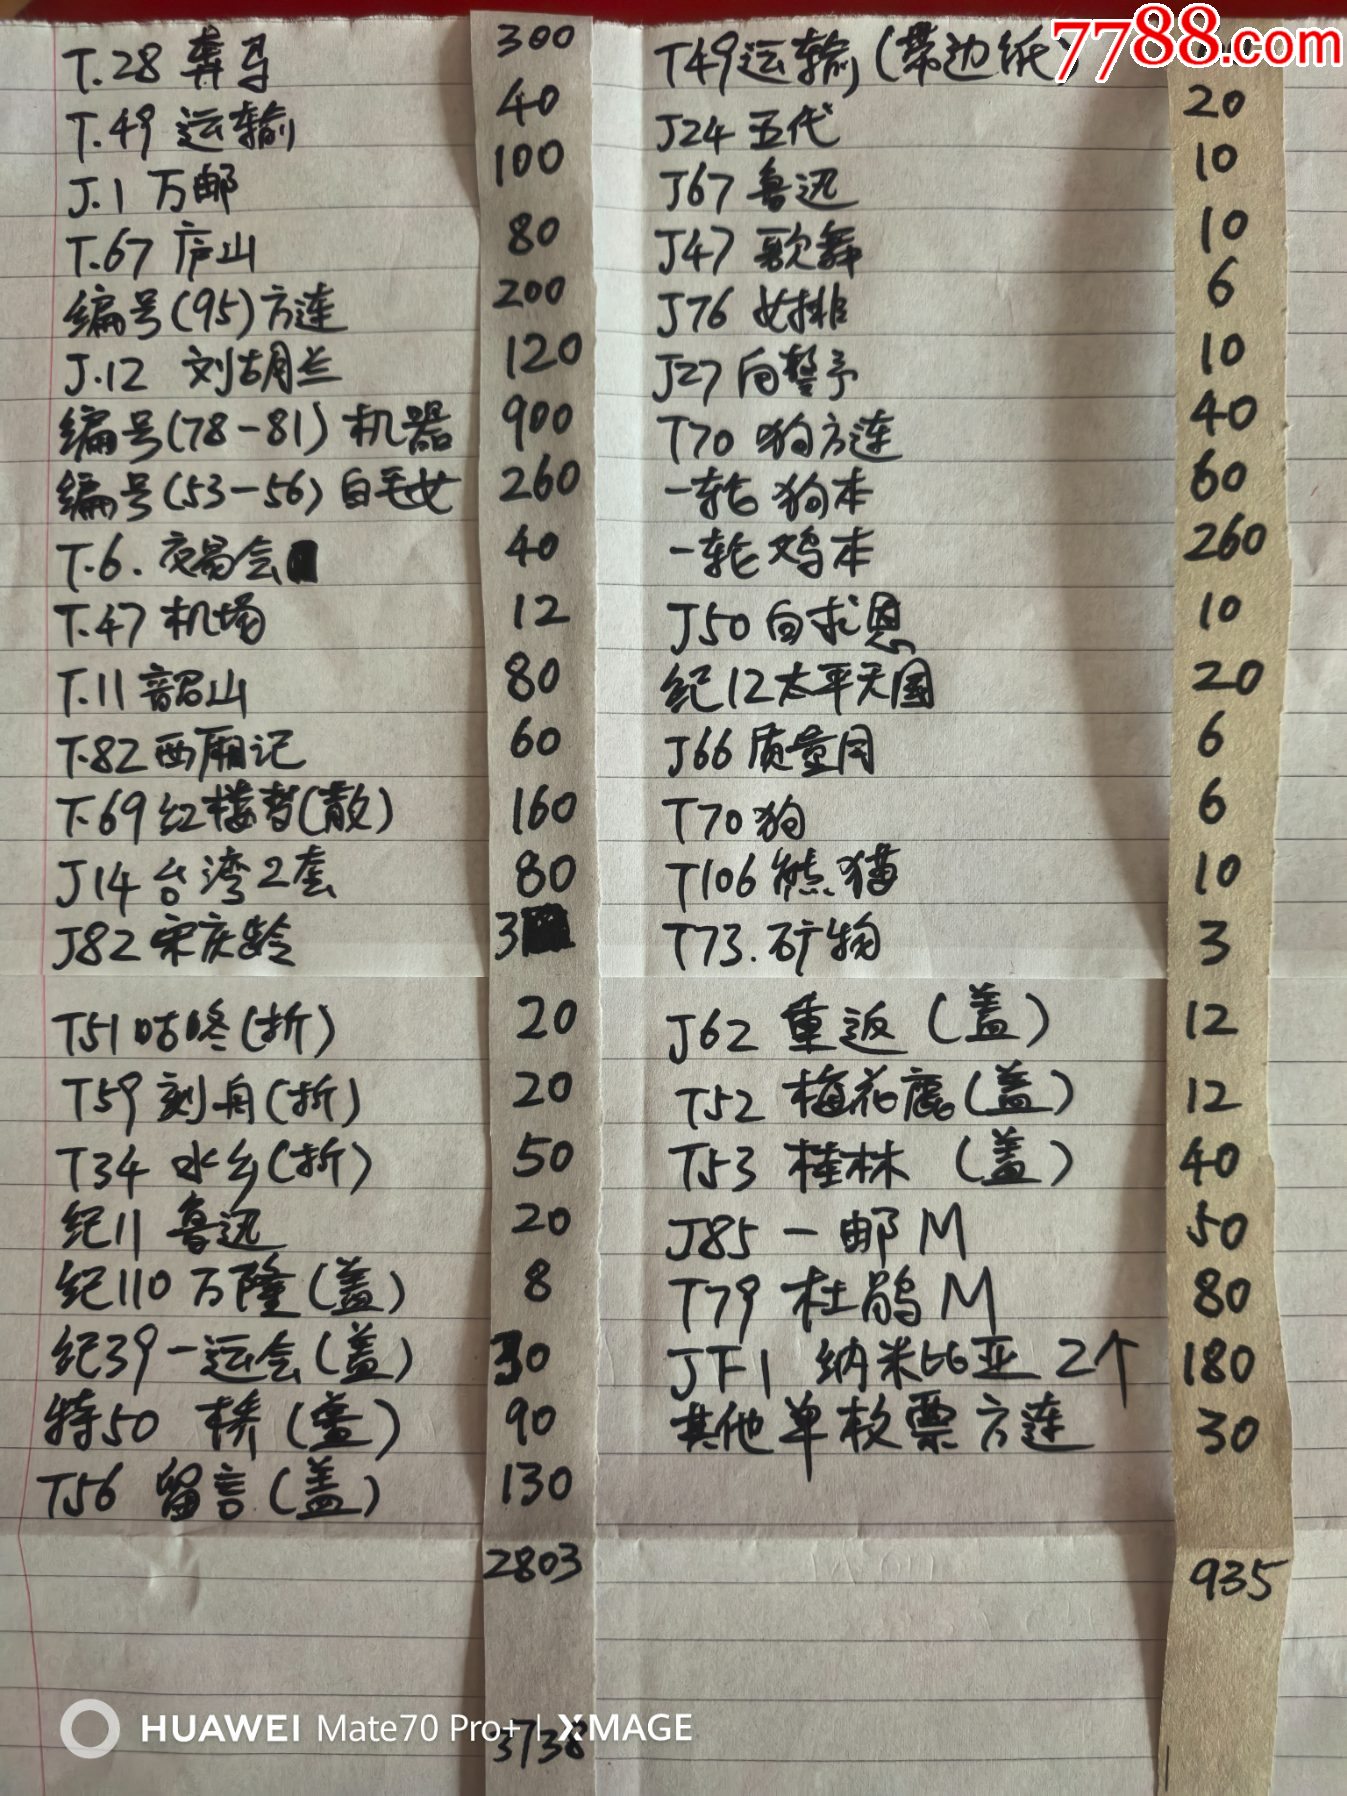 7788.com
T.28 奔马 300
T.49 运输 40
J.1 万邮 100
T.67 庐山 80
编号(95)方连 200
J.12 刘胡兰 120
编号(78-81)机器 900
编号(53-56)白毛女 260
T.6. 交易会 40
T.47 机场 12
T.11 韶山 80
T.82 西厢记 60
T.69 红楼梦(散) 160
J14 台湾2套 80
J82 宋庆龄 3
T51 咕咚(折) 20
T59 刻舟(折) 20
T34 水乡(折) 50
纪11 鲁迅 20
纪110 万隆(盖) 8
纪39 一运会(盖) 30
特50 桥(盖) 90
T56 留言(盖) 130
2803
3738
T49 运输(带边纸)
J24 五代 20
J67 鲁迅 10
J47 歌舞 10
J76 女排 6
J27 向警予 10
T70 狗方连 40
一轮 狗本 60
一轮 鸡本 260
J50 白求恩 10
纪12 太平天国 20
J66 质量月 6
T70 狗 6
T106 熊猫 10
T73. 矿物 3
J62 重返(盖) 12
T52 梅花鹿(盖) 12
T53 桂林(盖) 40
J85 一邮M 50
T79 杜鹃M 80
JF1 纳米比亚 2个 180
其他单枚票方连 30
935
HUAWEI Mate70 Pro+ | XMAGE